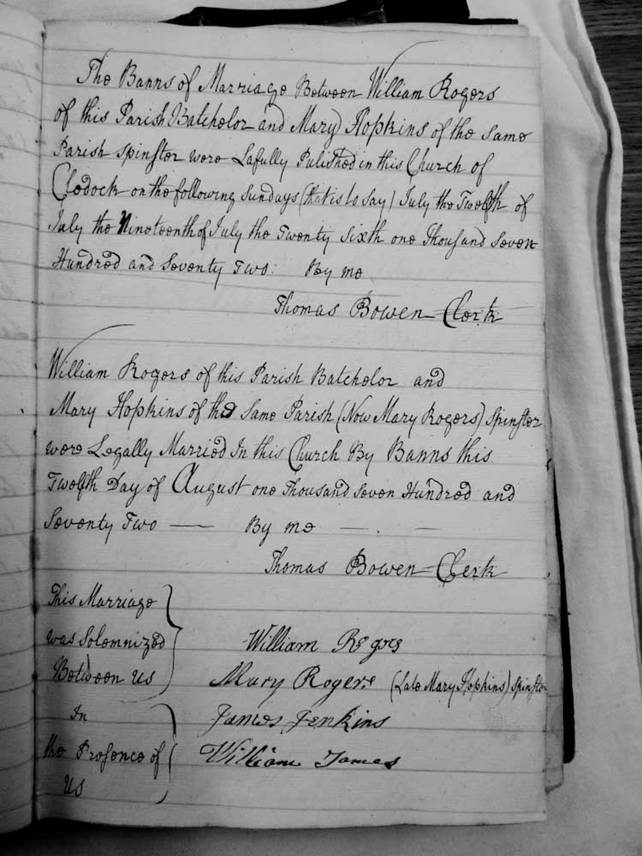 The Banns of Marriage Between William Rogers
of this Parish Batchelor and Mary Hopkins of the same
Parish Spinster were Lafully Published in this Church of
Clodock on the following Sundays (that is to say) July the Twelfth of
July the Nineteenth of July the Twenty Sixth one Thousand Seven
Hundred and Seventy Two: By me
Thomas Bowen Clerk
William Rogers of this Parish Batchelor and
Mary Hopkins of the Same Parish (Now Mary Rogers) Spinster
were Legally Married In this Church By Banns this
Twelfth Day of August one Thousand Seven Hundred and
Seventy Two — By me —
Thomas Bowen Clerk
This Marriage
was Solemnized William
Between Us Mary Rogers (Late Mary Hopkins) Spinster
In James Jenkins
the Presence of William James
Us